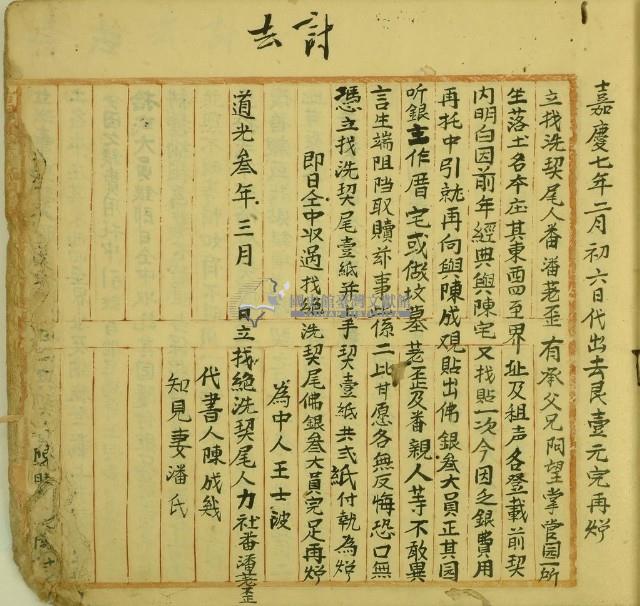 討去
嘉慶七年二月初六日代出去艮壹元完再炤
立找洗契尾人番潘茗歪有承父兄阿望掌管园一所
坐落土名本庄其東西四至界址及租声各登載前契
内明白因前年經典與陳宅又找貼一次今因乏銀費用
再托中引就再向與陳成观貼出佛銀叁大員正其园
听銀主作厝宅或做坟墓茗歪及番親人等不敢異
言生端阻挡取贖茲事此係二比甘愿各無反悔恐口無
憑立找洗契尾壹紙并上手契壹紙共弍紙付執為炤
即日仝中收過找絕洗契尾佛銀叁大員完足再炤
為中人王士波
道光叁年三月 日立找絕洗契尾人力社番潘茗歪
代書人陳成
知見妻潘氏
國史館臺灣文獻館